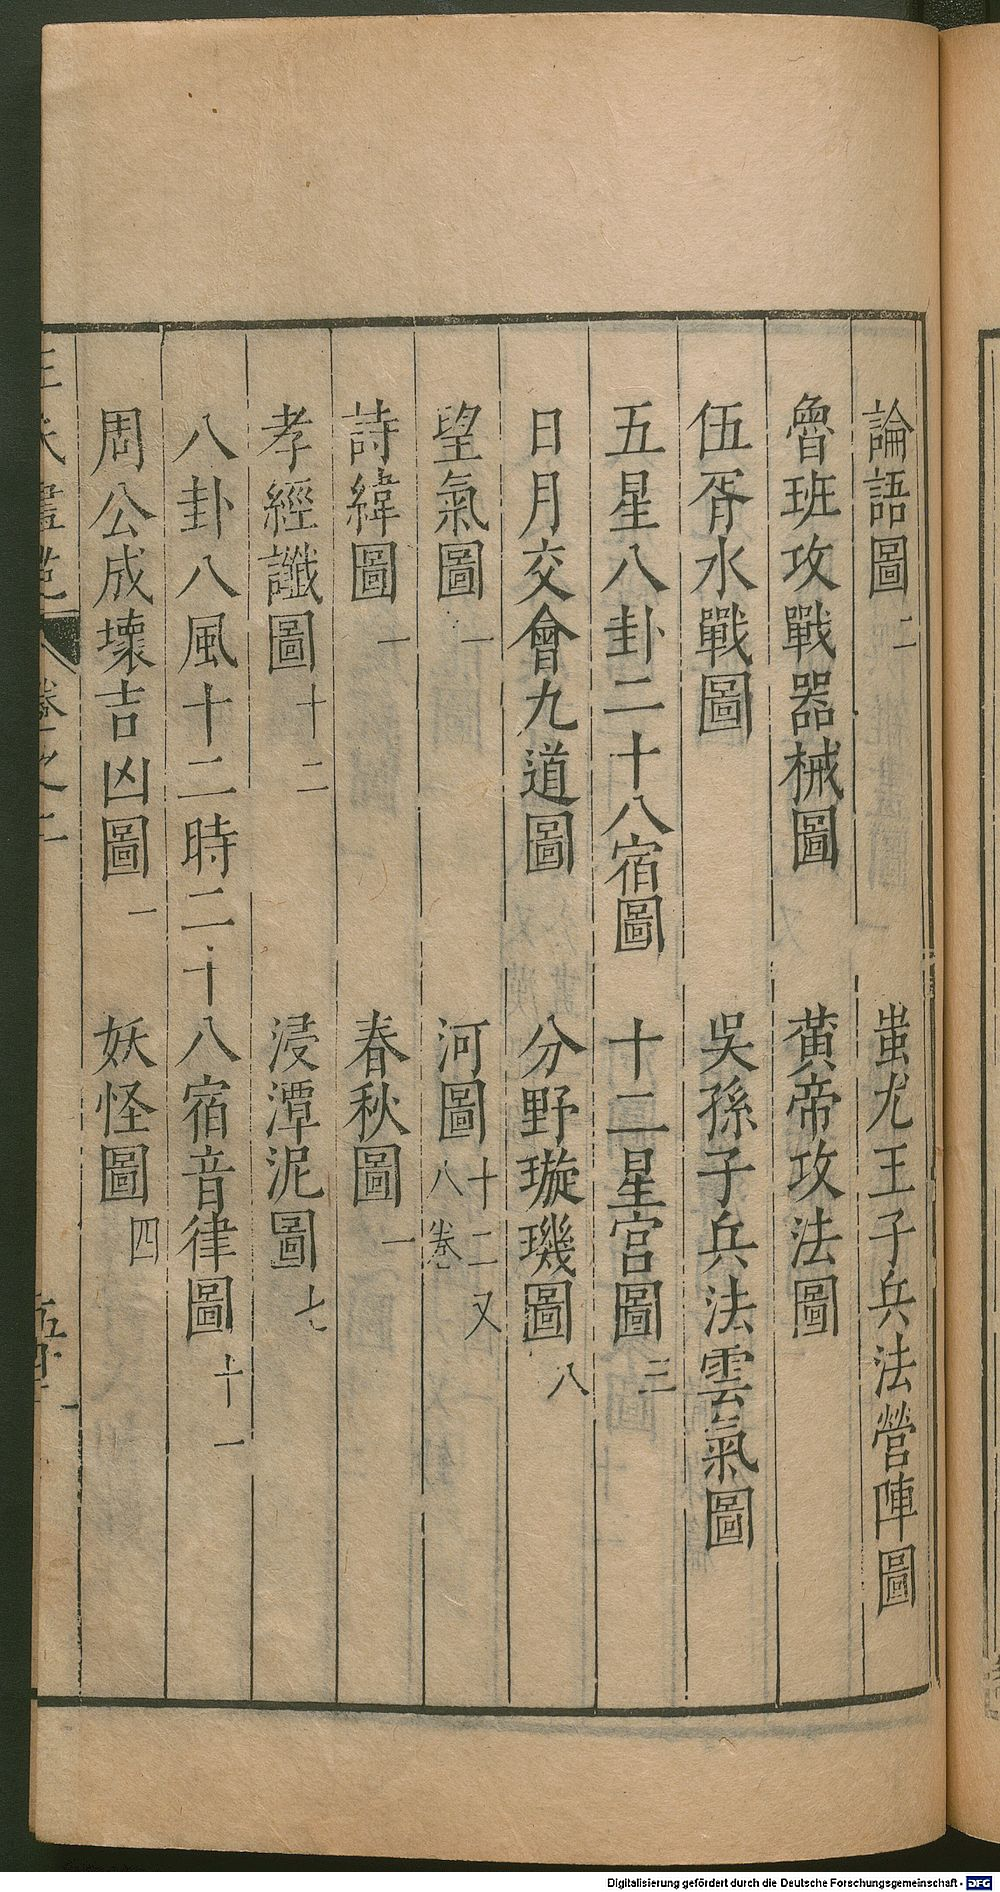 論語圖二　蚩尤王子兵法營陣圖
魯班攻戰器械圖　黃帝攻法圖
伍胥水戰圖　吳孫子兵法雲氣圖
五星八卦二十八宿圖　十二星宮圖三
日月交會九道圖　分野璇璣圖八
望氣圖一　河圖十二又八卷
詩緯圖一　春秋圖一
孝經讖圖十二　浸潭泥圖七
八卦八風十二時二十八宿音律圖十一
周公成壞吉凶圖一　妖怪圖四
王氏畫苑　卷之二　五
Digitalisierung gefördert durch die Deutsche Forschungsgemeinschaft - DFG